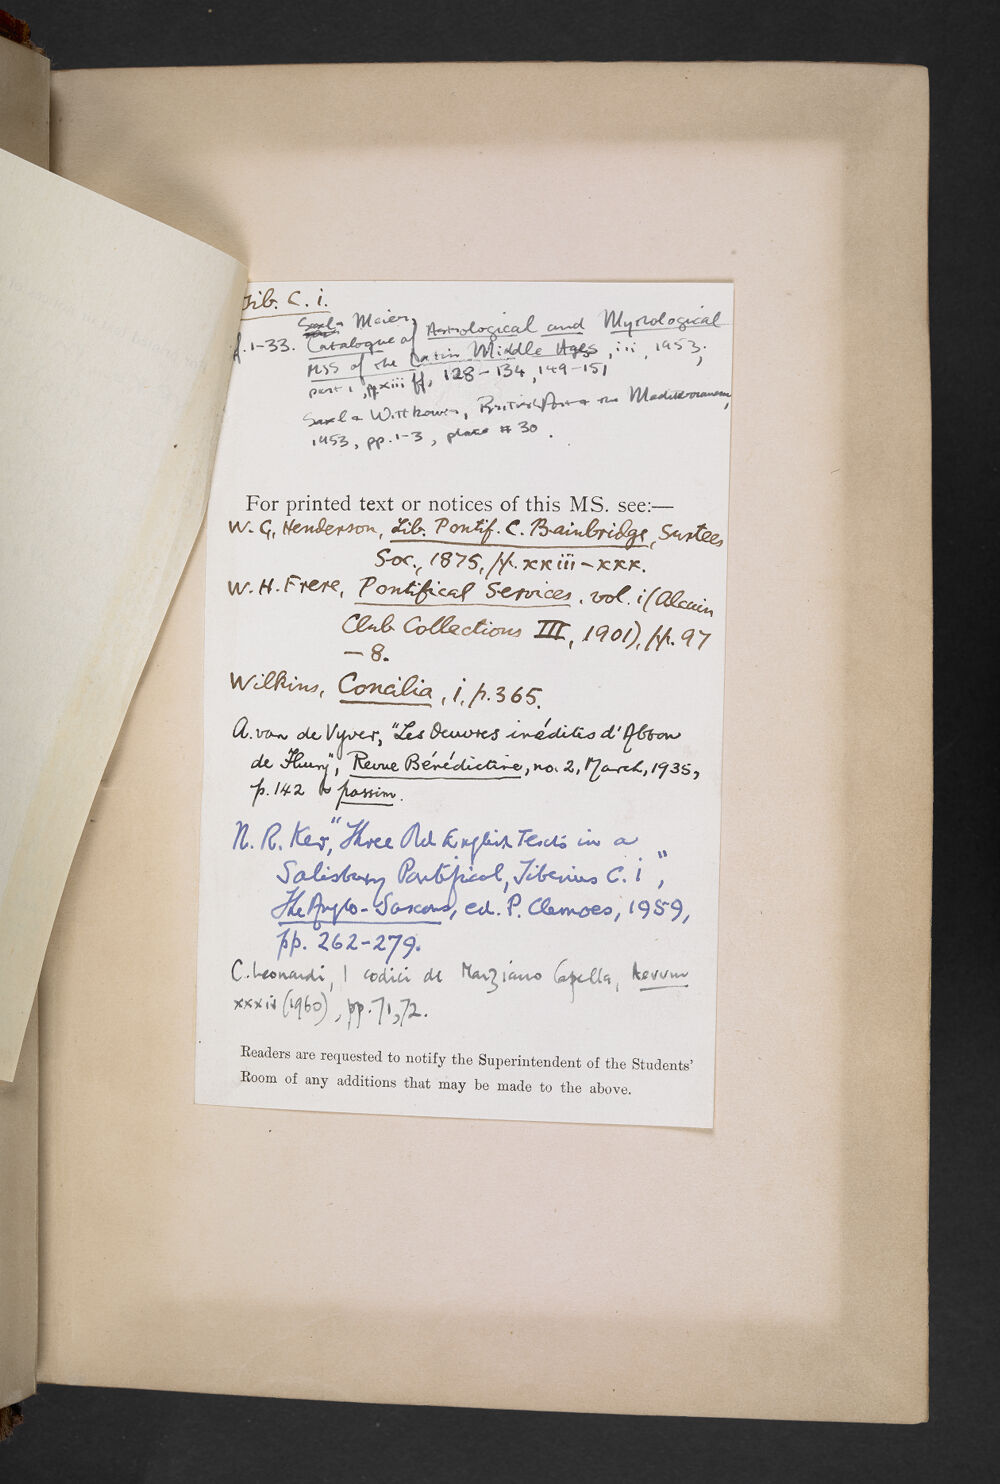 Tib. C. i.
Saxl & Meier,
ff. 1-33. Catalogue of Astrological and Mythological
MSS of the Latin Middle Ages, iii, 1953,
part 1, pp. xiii ff, 128-134, 149-151
Saxl & Wittkower, British Art & the Mediterranean,
1953, pp. 1-3, plate # 30.
For printed text or notices of this MS. see:—
W. G. Henderson, Lib. Pontif. C. Bainbridge, Surtees
Soc., 1875, pp. xxiii-xxx.
W. H. Frere, Pontifical Services, vol. i (Alcuin
Club Collections III, 1901), pp. 97
-8.
Wilkins, Concilia, i, p. 365.
A. van de Vyver, "Les Oeuvres inédites d'Abbon
de Fleury", Revue Bénédictine, no. 2, March, 1935,
p. 142 & passim.
N. R. Ker, "Three Old English Texts in a
Salisbury Pontifical, Tiberius C. i",
The Anglo-Saxons, ed. P. Clemoes, 1959,
pp. 262-279.
C. Leonardi, I codici di Marziano Capella, Aevum
xxxiv (1960), pp. 71, 72.
Readers are requested to notify the Superintendent of the Students'
Room of any additions that may be made to the above.